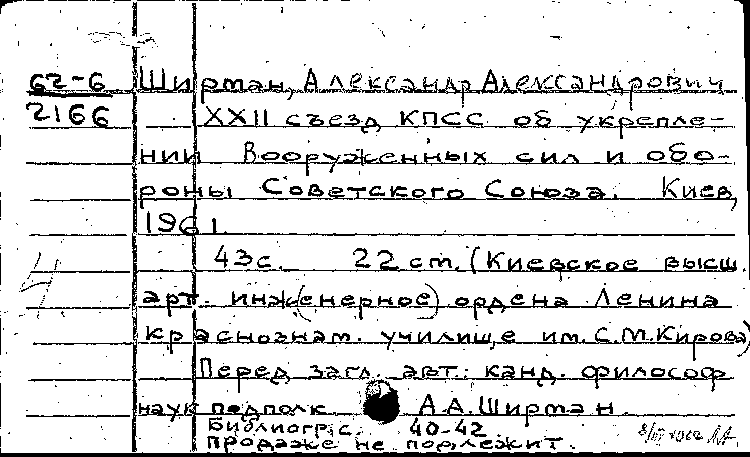 62-6 Ширман, Александр Александрович
2166 XXII съезд КПСС об укрепле-
нии Вооруженных сил и обо-
роны Советского Союза. Киев,
1961.
43с. 22 cm. (Киевское высш.
4 арт. инж(енерное) ордена Ленина
краснознам. училище им. С.М.Кирова)
Перед загл. авт.: канд. философ
наук подполк. А.А.Ширман.
Библиогр. с. 40-42
продаже не подлежит.